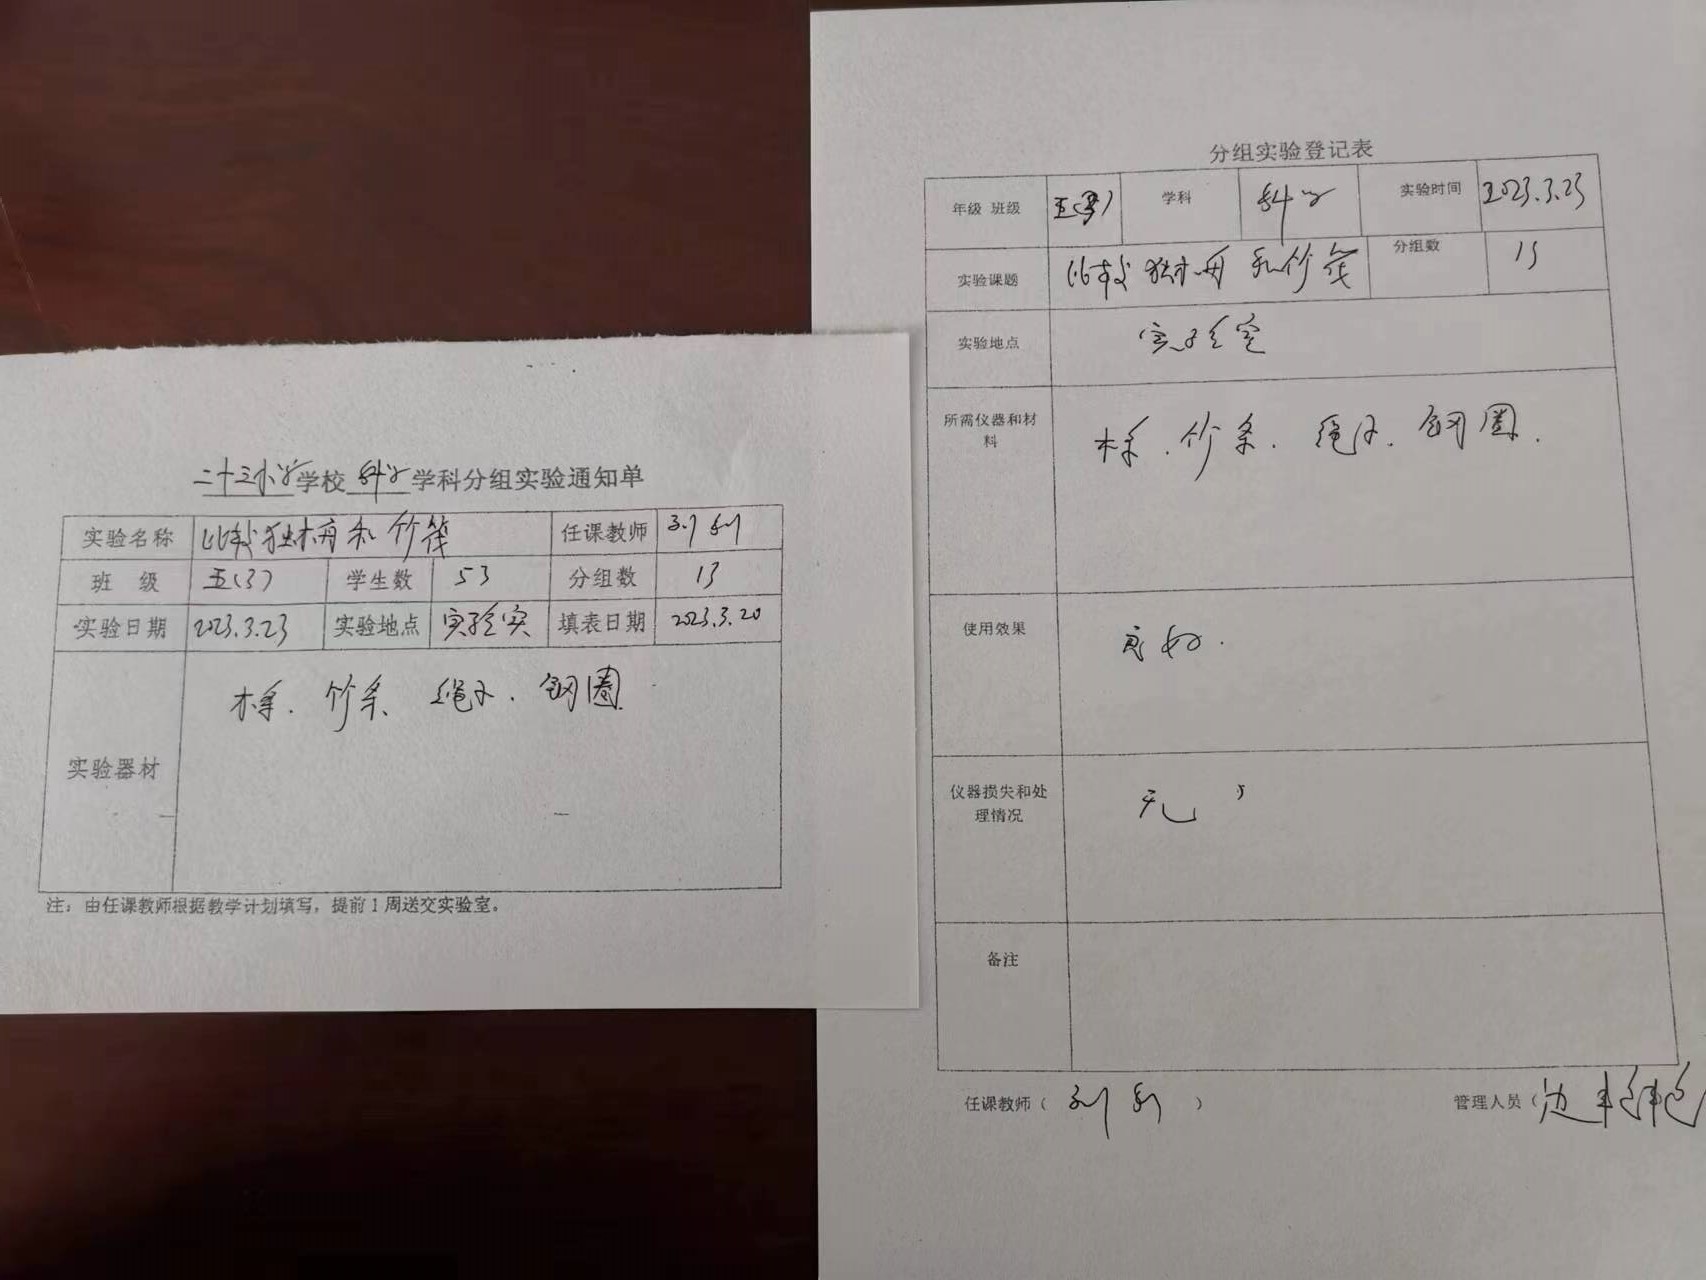 二十三小学学校 科学 学科分组实验通知单
实验名称 比较独木舟和竹筏 任课教师 刘利
班 级 五(3) 学生数 53 分组数 13
实验日期 2023.3.23 实验地点 实验室 填表日期 2023.3.20
实验器材 竹条、绳子、钢圈
注：由任课教师根据教学计划填写，提前1周送交实验室。
分组实验登记表
年级 班级 五(3) 学科 科学 实验时间 2023.3.23
实验课题 比较独木舟和竹筏 分组数 13
实验地点 实验室
所需仪器和材料 竹条、绳子、钢圈.
使用效果 良好.
仪器损失和处理情况 无
备注
任课教师（ 刘利 ） 管理人员（